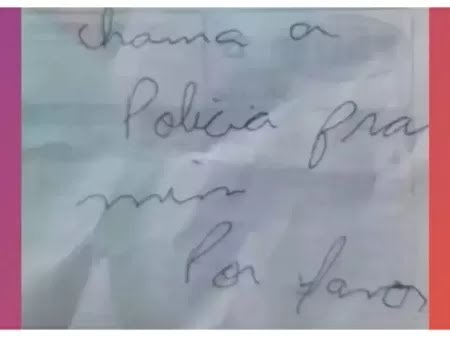 chama a
Policia pra
min
Por favor